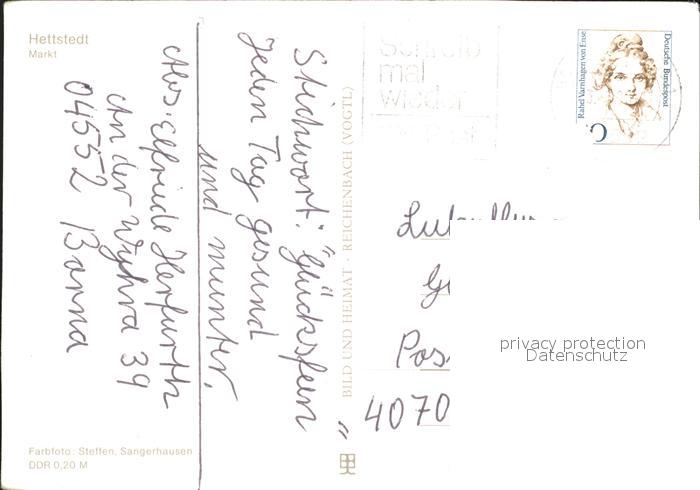 Hettstedt
Markt
Abs. Elfriede Herfurth
An der Wyhra 39
04552 Borna
Farbfoto: Steffen, Sangerhausen
DDR 0,20 M
Stichwort: "Glücksfeen"
Jeden Tag gesund
und munter.
BILD UND HEIMAT · REICHENBACH (VOGTL)
Schreib
mal
wieder
Post
Rahel Varnhagen von Ense
Deutsche Bundespost
Pos
4070
privacy protection
Datenschutz